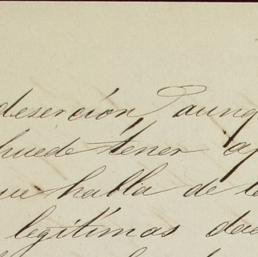 deserción, aunq
puede tener ap
ue halla de le
legítimas da